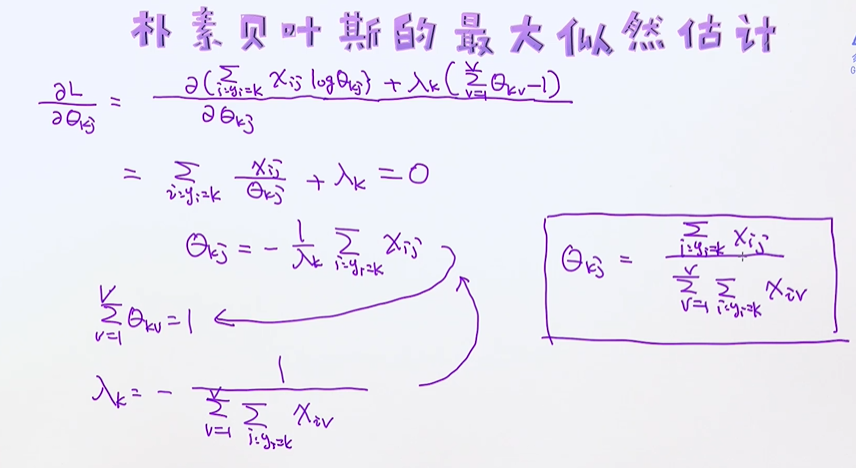 朴素贝叶斯的最大似然估计
∂L/∂θkj = ∂(∑i:yi=k xij logθkj) + λk(∑v=1^V θkv-1)/∂θkj
= ∑i:yi=k xij/θkj + λk = 0
θkj = - 1/λk ∑i:yi=k xij
∑v=1^V θkv = 1
λk = - 1/∑v=1^V ∑i:yi=k xiv
θkj = ∑i:yi=k xij/∑v=1^V ∑i:yi=k xiv